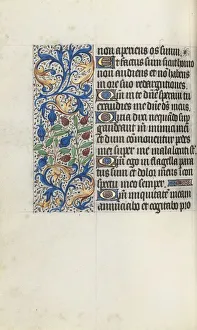 non aperiens os suum.
Et factus sum sicut homo
non audiens et non habens
in ore suo redargutiones.
Quoniam in te domine speravi tu
exaudies me domine deus meus.
Quia dixi nequando super
gaudeant michi inimici mei
et dum commoventur pedes
mei super me magna locuti sunt
Quoniam ego in flagella para
tus sum et dolor meus in con
spectu meo semper.
Quoniam iniquitatem meam
annunciabo et cogitabo pro